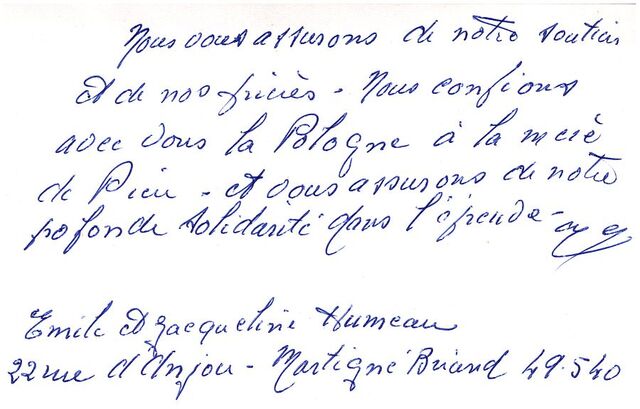 Nous vous assurons de notre soutien
et de nos prières - Nous confions
avec vous la Pologne à la mère
de Dieu - et vous assurons de notre
pofonde solidarité dans l'épreuve -
Emile et Jacqueline Humeau
22 rue d'Anjou - Martigné Briand 49.540